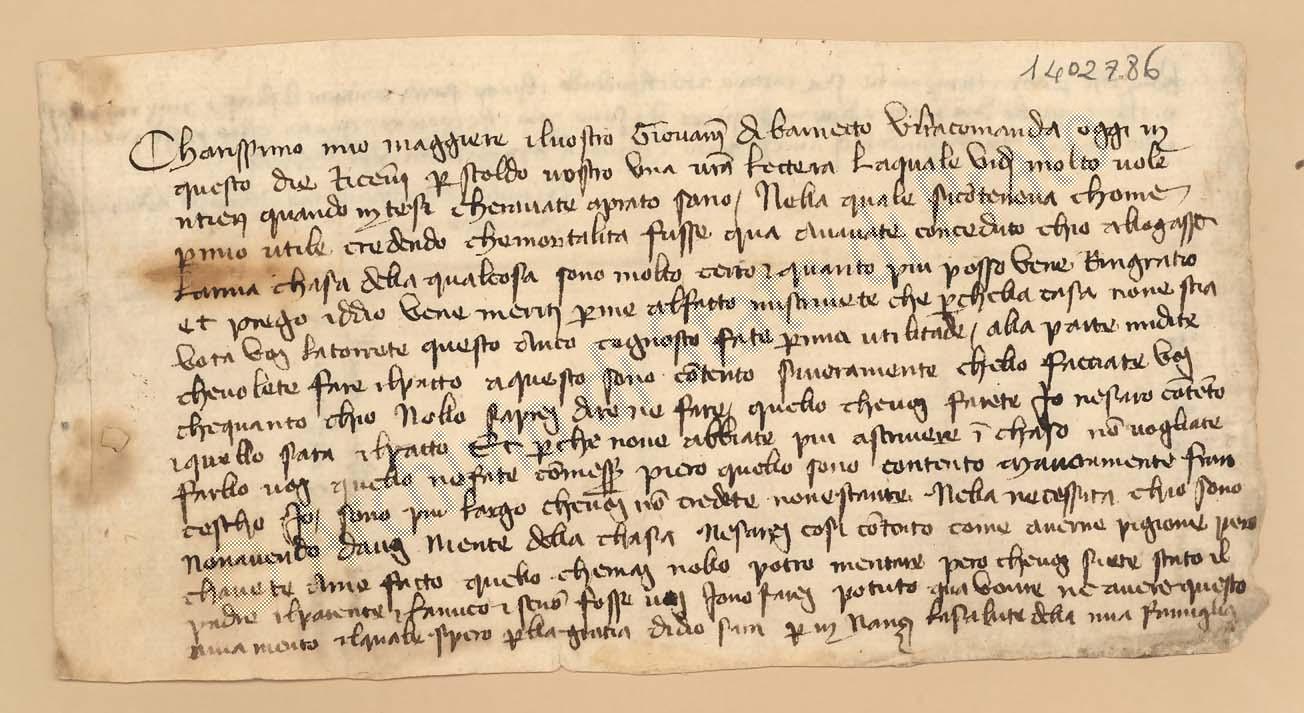 1402786
Charissimo mio maggiere il vostro Giovanni di barnetto vi si racomanda oggi in
questo die ricevi per stoldo vostro una vostra lectera la quale vidi molto vole
ntieri quando intesi che eravate a prato sano / Nella quale si contenea chome
per mio utile credendo che mortalita fusse qua avavate conceduto chio allogasse
la mia chasa della qual cosa sono molto certo e quanto piu posso vene Ringratio
et priego iddio vene meriti per me al fatto mi scrivete che perche la casa none stia
vota voi la torrete questo anco cognosco fate per mia utilitade / alla parte mi dite
che volete fare il patto a questo sono contento siveramente che llo facciate voi
che quanto chio Nollo saprei dire ne fare quello che voi farete Io ne saro contento
e quello sara il patto Et perche none abbiate piu a scrivere in chaso non vogliate
farllo voi quello ne fate con messer piero quello sono contento Ma veramente fran
cescho Io sono piu largo che voi non credete none stante Nella necessita chio sono
non avendo da voi Niente della chasa Ne sarei cosi contento come averne pigione pero
chavete a me facto quello che mai nollo potro meritare pero che voi siete stato il
padre il parente e l amico e se non fosse voi Io no sarei potuto qua venire ne avere questo
aviamento il quale spero per la gratia di dio sara per in Nanzi la salute della mia famiglia